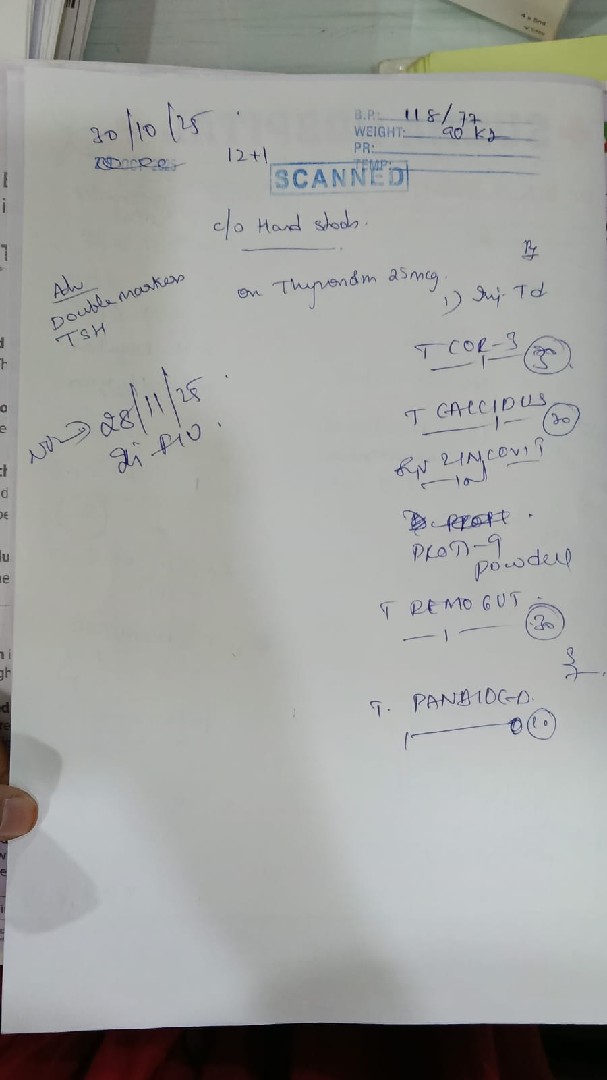 30/10/25
B.P.: 118/77
WEIGHT: 90 Kg
PR:
TEMP:
12+1
SCANNED
c/o Hard stools.
Adv
Double markers
TSH
on Thyronorm 25mcg.
Rx
1) Inj. Td
T COR-3 30
T CALCIDUS 30
Syp ZINCOVIT
PROTI-9
powder
T REMOGUT 30
T. PANBIOG-D. 10
28/11/25